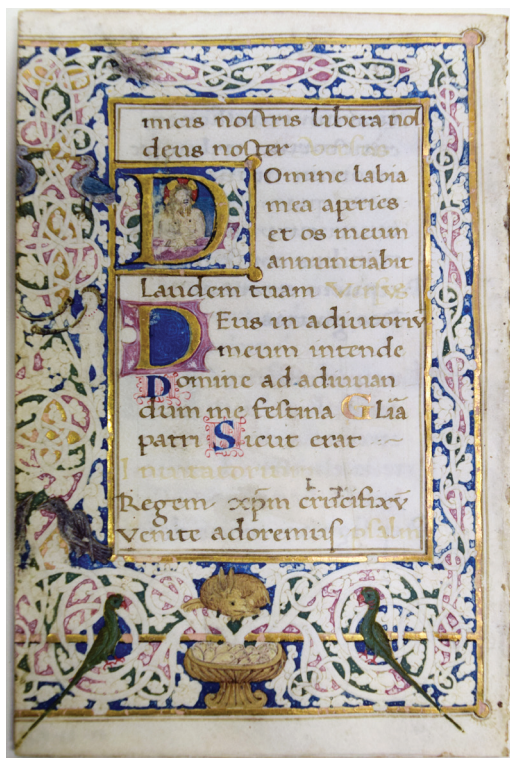 imicis nostris libera nos
deus noster
Domine labia
mea apries
et os meum
annuntiabit
Laudem tuam Versus
Deus in adiutoriū
meum intende
Domine ad adiuuan
dum me festina Glīa
patri Sicut erat
Inuitatorium
Regem xp̄m crucifixū
Venite adoremus psalm